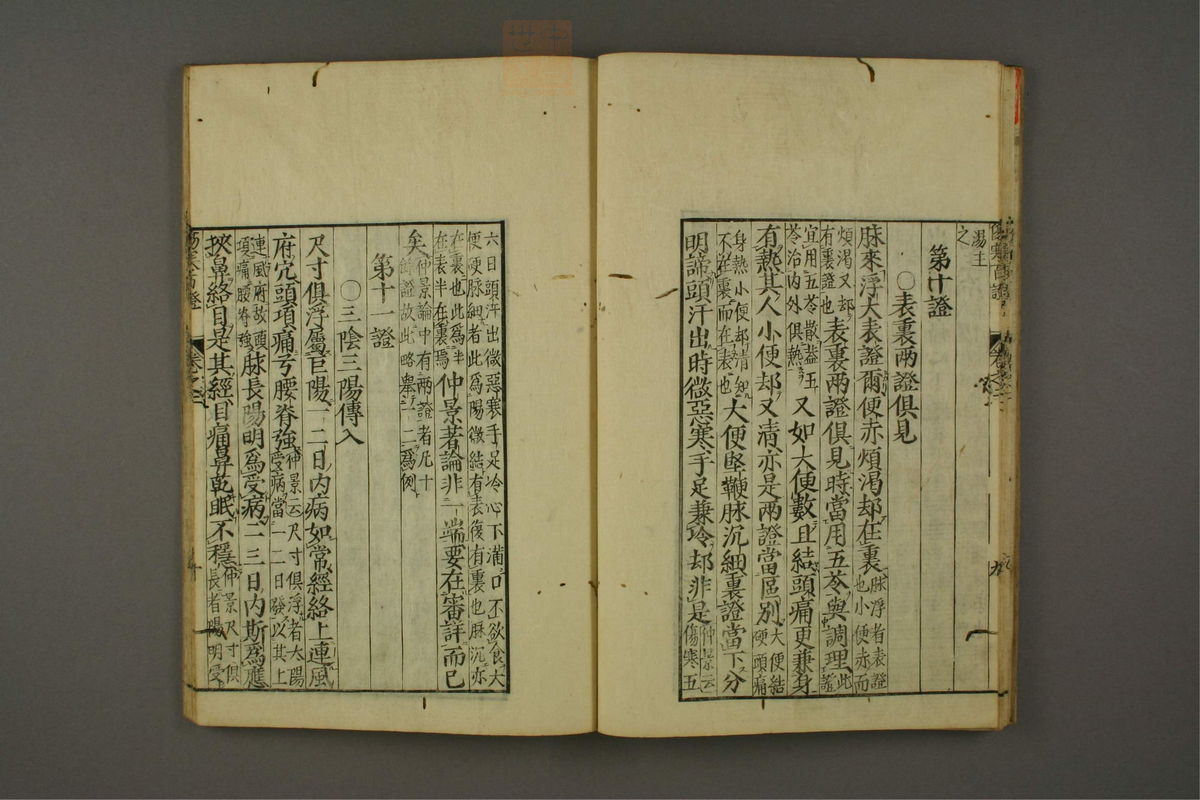 湯主
之
第十證
○表裏兩證俱見
脉來浮大表證爾便赤煩渴却在裏脉浮者表證
也小便赤而
煩渴又却
有裏證也表裏兩證俱見時當用五苓與調理此
證
宜用五苓散蓋五
苓治內外俱熱又如大便數且結頭痛更兼身
有熱其人小便却又清亦是兩證當區別大便結
硬頭痛
身熱小便却清知
不在裏而在表也大便堅鞕脉沉細裏證當下分
明諦頭汗出時微惡寒手足兼冷却非是仲景云
傷寒五
六日頭汗出微惡寒手足冷心下滿口不欲食大
便硬脉細者此爲陽微結有表復有裏也脉沉亦
在裏也此爲半
在表半在裏焉仲景著論非一端要在審詳而已
矣仲景論中有兩證者凡十
餘證故此略舉一二爲例
第十一證
○三陰三陽傳入
尺寸俱浮屬巨陽一二日內病如常經絡上連風
府穴頭項痛兮腰脊強仲景云尺寸俱浮者太陽
受病當一二日發以其上
連風府故頭
項痛腰脊強脉長陽明爲受病二三日內斯爲應
挾鼻絡目是其經目痛鼻乾眠不穩仲景尺寸俱
長者陽明受